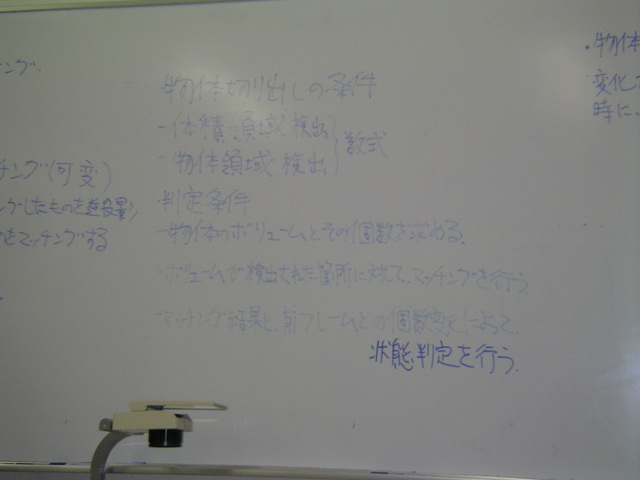 チング
物体切り出しの条件
-体積領域検出
-物体領域検出
数式
・判定条件
-物体のボリュームとその個数を求める.
-ボリュームが検出された箇所に対して,マッチングを行う.
-マッチング結果と,前フレームとの個数変化によって,
状態判定を行う.
チング(可変)
ングしたものを逆投影
をマッチングする
・物体
変化
時に